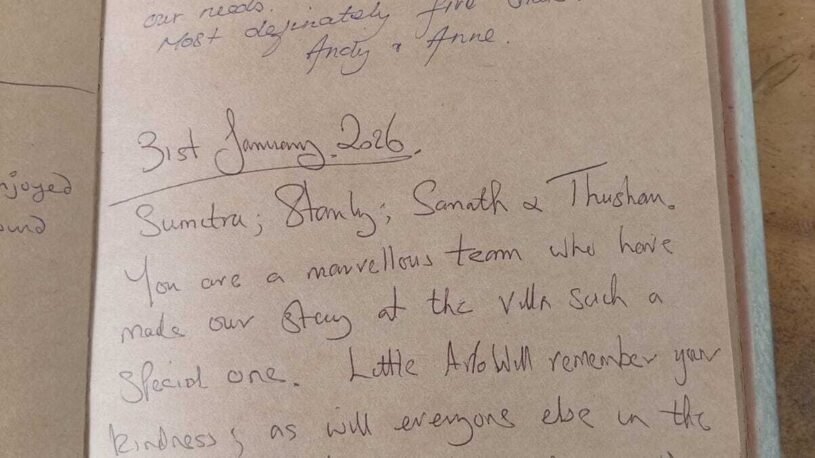 our needs.
Most definately five
Andy & Anne.
njoyed
ound
31st January. 2026.
Sumitra; Stanly; Sanath & Thushan.
You are a marvellous team who have
made our stay at the villa such a
special one. Little Arlo will remember your
kindness; as will everyone else in the